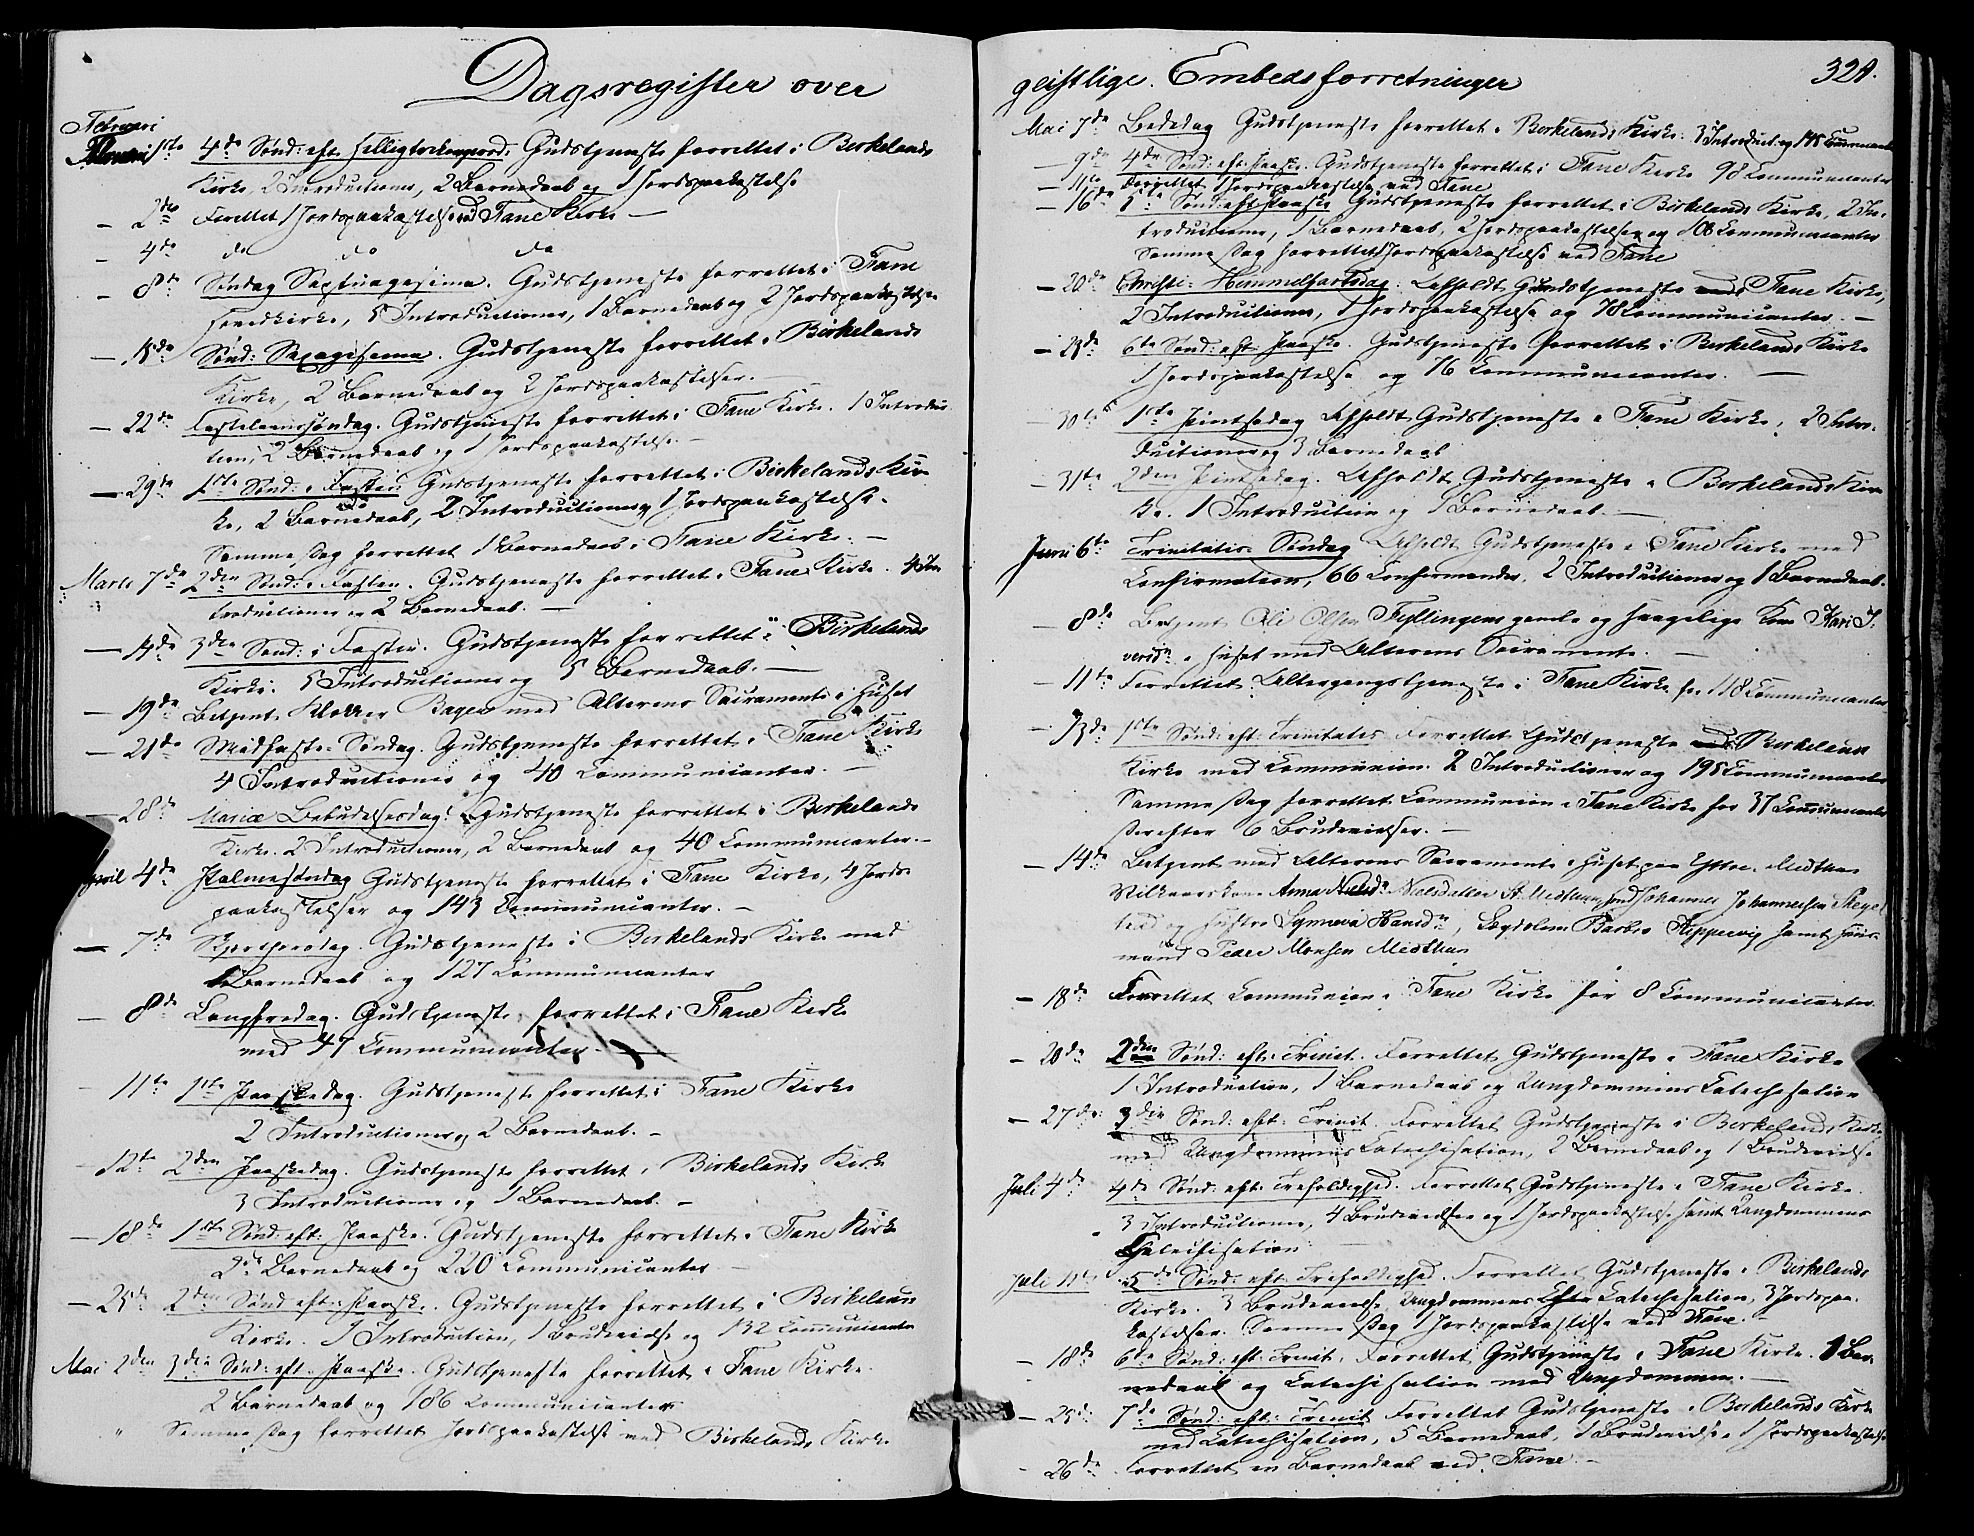 Dagsregister over
Februari
1ste 4de Sønd: eft. Helligtrekongersd. Gudstjeneste forrettet i Birkelands
Kirke, 2 Introductioner, 2 Barnedaab og 1 Jordspaakastelse
— 2den Forrettet 1 Jordspaakastelse ved Fane Kirke —
— 4de do do do
— 8de Søndag Septuagesima. Gudstjeneste forrettet i Fane
Hovedkirke, 5 Introductioner, 1 Barnedaab og 2 Jordspaakastelser
— 15de Sønd: Sexagesima. Gudstjeneste forrettet i Birkelands
Kirke, 2 Barnedaab og 2 Jordspaakastelser. —
— 22de Fastelavnssøndag. Gudstjeneste forrettet i Fane Kirke. 1 Introduc
tion, 2 Barnedaab og 1 Jordspaakastelse. —
— 29de 1ste Sønd: i Fasten. Gudstjeneste forrettet i Birkelands Kir
ke, 2 Barnedaab, 2 Introductioner og 1 Jordspaakastelse.
Samme Dag forrettet 1 Barnedaab i Fane Kirke. —
Marts 7de 2den Sønd: i Fasten. Gudstjeneste forrettet i Fane Kirke. 4 In
troductioner og 2 Barnedaab. —
— 14de 3die Sønd: i Fasten. Gudstjeneste forrettet i Birkelands
Kirke. 5 Introductioner og 5 Barnedaab. —
— 19de Betjent Klokker Bager med Alterens Sacramente i Huset
— 21de Midfaste-Søndag. Gudstjeneste forrettet i Fane Kirke
4 Introductioner og 40 Communicanter. —
28de Mariæ Bebudelsesdag. Gudstjeneste forrettet i Birkelands
Kirke. 2 Introductioner, 2 Barnedaab og 40 Communicanter. —
April 4de Palmesøndag Gudstjeneste forrettet i Fane Kirke, 4 Jords
paakastelser og 143 Communicanter. —
— 7de Skjærthorsdag. Gudstjeneste i Birkelands Kirke med
1 Barnedaab og 127 Communicanter
— 8de Langfredag. Gudstjeneste forrettet i Fane Kirke
med 47 Communicanter. —
— 11te 1ste Paaskedag. Gudstjeneste forrettet i Fane Kirke
2 Introductioner og 2 Barnedaab. —
— 12te 2den Paaskedag. Gudstjeneste forrettet i Birkelands Kirke
3 Introductioner og 1 Barnedaab. —
— 18de 1ste Sønd: eft: Paaske. Gudstjeneste forrettet i Fane Kirke
2 Barnedaab og 220 Communicanter —
— 25de 2den Sønd: eft: Paaske. Gudstjeneste forrettet i Birkelands
Kirke. 1 Introduction, 1 Brudevielse og 132 Communicanter
Mai 2den 3die Sønd: eft: Paaske. Gudstjeneste forrettet i Fane Kirke
2 Barnedaab og 186 Communicanter
" Samme Dag forrettet Jordspaakastelse ved Birkelands Kirke
geistlige Embedsforretninger
321.
Mai 7de Bededag Gudstjeneste forrettet i Birkelands Kirke: 3 Introduct. og 145 Communicanter
— 9de 4de Sønd: eft: Paaske. Gudstjeneste forrettet i Fane Kirke 98 Communicanter
— 11te Forrettet 1 Jordspaakastelse ved Fane
— 16de 5te Sønd: eft Paaske Gudstjeneste forrettet i Birkelands Kirke, 2 In-
troductioner, 1 Barnedaab, 2 Jordspaakastelser og 108 Communicanter
Samme Dag forrettet 1 Jordspaakastelse ved Fane
— 20de Christi Himmelfartsdag. Afholdt Gudstjeneste i Fane Kirke,
2 Introductioner, 1 Jordspaakastelse og 78 Communicanter. —
— 23de 6te Sønd: eft Paaske. Gudstjeneste forrettet i Birkelands Kirke
1 Jordspaakastelse og 76 Communicanter. —
— 30te 1ste Pintsedag Afholdt Gudstjeneste i Fane Kirke, 2 Intro-
ductioner og 3 Barnedaab
— 31te 2den Pintsedag. Afholdt Gudstjeneste i Birkelands Kir
ke. 1 Introduction og 1 Barnedaab. —
Juni 6te Trinitatis Søndag Afholdt Gudstjeneste i Fane Kirke med
Confirmation, 66 Confirmander, 2 Introductioner og 1 Barnedaab.
— 8de Betjent Ole Olsen Fyllingens gamle og svagelige Kone Kari I-
versdr i Huset med Alterens Sacramente. —
— 11te Forrettet Altergangstjeneste i Fane Kirke for 118 Communicanter
— 13de 1ste Sønd: eft: Trinitatis Forrettet Gudstjeneste i Birkelands
Kirke med Communion. 2 Introductioner og 195 Communicanter
Samme Dag forrettet Communion i Fane Kirke for 37 Communicanter
derefter 6 Brudevielser. —
— 14de Betjent med Alterens Sacramente i Huset paa Yttre-Midthun
Vilkaarskone Anna Nielsdatter Midthun, Johannes Johannessen Skjol
og Hustru Synneva Hansdr, Barbro samt Huus-
mand Peder Monsen Midthun
— 18de Forrettet Communion i Fane Kirke for 8 Communicanter.
— 20de 2den Sønd: eft: Trinit. Forrettet Gudstjeneste i Fane Kirke
1 Introduction, 1 Barnedaab og Ungdommens Catechisation
— 27de 3die Sønd: eft: Trinit. Forrettet Gudstjeneste i Birkelands Kirke
med Ungdommens Catechisation, 2 Barnedaab og 1 Brudevielse
Juli 4de 4de Sønd: eft: Trefoldighed. Forrettet Gudstjeneste i Fane Kirke.
3 Introductioner, 4 Brudevielser og 1 Jordspaakastelse samt Ungdommens
Catechisation.
Juli 11te 5te Sønd: eft. Trefoldighed. Forrettet Gudstjeneste i Birkelands
Kirke. 3 Brudevielse, Ungdommens Catechisation, 3 Jordspaa-
kastelser. Samme Dag 1 Jordspaakastelse ved Fane. —
— 18de 6te Sønd: eft: Trinit. Forrettet Gudstjeneste i Fane Kirke. 1 Bar-
nedaab og Catechisation med Ungdommen. —
— 25de 7de Sønd: eft: Trinit Forrettet Gudstjeneste i Birkelands Kirke
med Catechisation, 5 Barnedaab, 1 Brudevielse 1 Jordspaakastelse
— 26de Forrettet en Barnedaab ved Fane. —